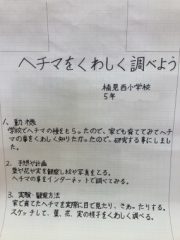 ヘチマをくわしく調べよう
植見西小学校
5年
1、動機
学校でヘチマの種をもらったので、家でも育ててみてヘチ
マの事をくわしく知りたかったので、研究する事にしまし
た。
2、予想や計画
葉や花や実を観察し絵や写真をとる。
ヘチマの事をインターネットで調べてみる。
3、実験・観察方法
家で育てたヘチマを実際に目で見たり、さわったりする。
スケッチして、葉、花、実の様子をくわしく調べる。